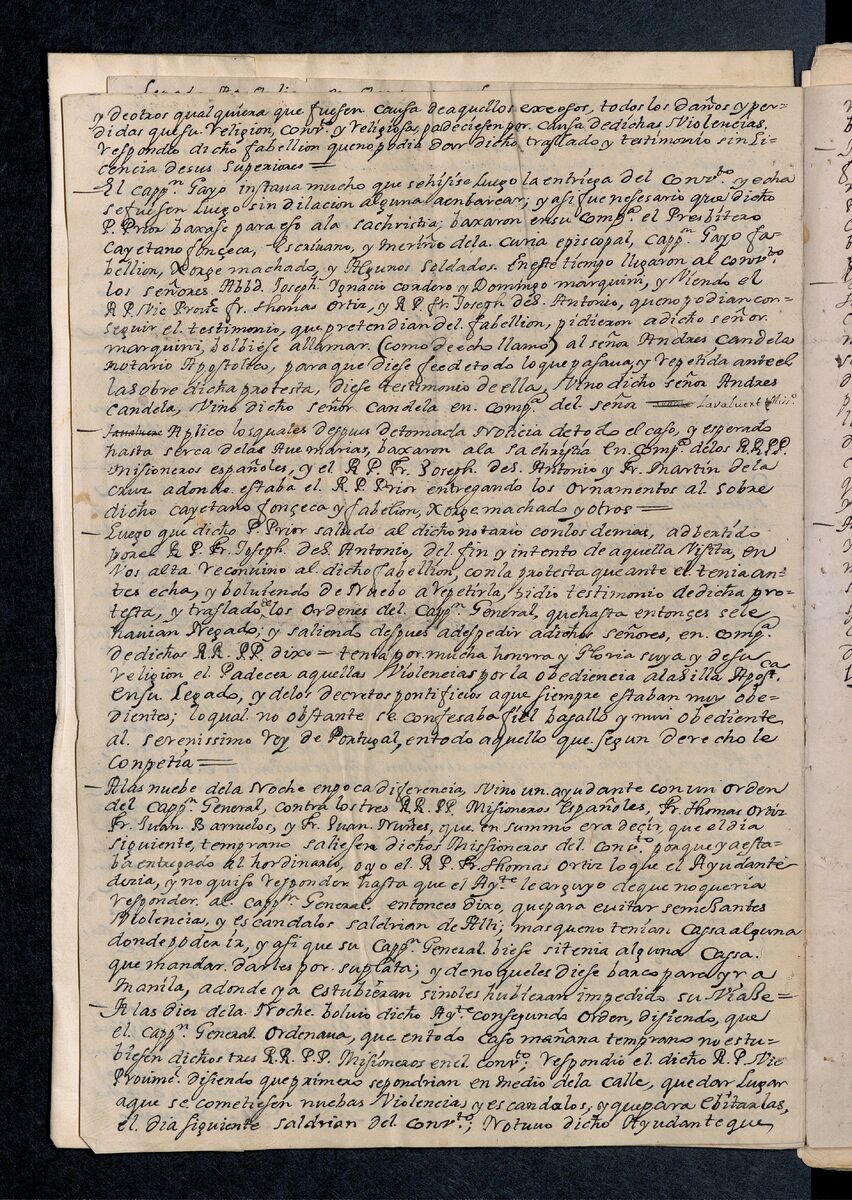 y de otros qualquiera que fuesen causa de aquellos exçesos, todos los daños y per=
didas que su religion, convto. y religiosa, padeciesen por causa de dichas Violencias.
respondio dicho fabellion que no podia dar dicho traslado y testimonio sin Li=
cencia de sus superiores =
El cappn. Gayo instava mucho que se hisise Luego la entrega del convto. y echa
se fuesen Luego sin dilacion alguna a enbarcar; y asi fue nesesario que dicho
P. Prior baxase para eso a la sachristia; baxaron en su compa. el Presbitero
Cayetano fonçeca, Escrivano, y meriño de la curia episcopal, cappn. Gayo fa-
bellion, Xorge machado, y Algunos soldados. En este tiempo llegaron al convto.
los señores Abbd. Joseph. Ignacio cordero y Domingo marquini, y Viendo el
R.P. Vic Provl. fr. Thomas Ortiz, y R.P. fr. Joseph de S. Antonio, que no podian con=
seguir el testimonio, que pretendian del fabellion, pidieron a dicho señor
marquini, bolbiese a llamar (como de echo llamo) al señor Andres candela
notario Apostolico, para que diese fee de todo lo que pasava, y repetida ante el
la sobre dicha protesta, diese testimonio de ella, Vino dicho señor Andres
candela, Vino dicho señor Candela en compa. del señor Lavaluere Miso.
Aplico los quales despues de tomada Noticia de todo el caso, y esperado
hasta serca de las Ave marias, baxaron a la sachristia en compa. de los R.R.P.P.
misioneros españoles, y el R.P. Fr. Joseph de S. Antonio y Fr. Martin de la
cruz adonde estaba el R.P. Prior entregando los ornamentos al sobre
dicho cayetano fonçeca y fabelion, Xorge machado y otros =
Luego que dicho P. Prior saludo al dicho notario con los demas, adbertido
por el R.P. Fr. Joseph de S. Antonio, del fin y intento de aquella Visita, en
Vos alta reconvino al dicho fabellion, con la protesta que ante el tenia an=
tes echa, y bolviendo de Nuebo a repetirla, pidio testimonio de dicha pro-
testa, y traslado de los ordenes del Cappn. General, que hasta entonçes se le
havian Negado; y saliendo despues a despedir a dichos señores, en compa.
de dichos RR. PP. dixo = tenia por mucha honrra y Gloria suya y de su
religion el Padecer aquellas Violencias por la obediencia a la silla Aposca.
en su Legado, y de los decretos pontificios a que siempre estaban muy obe-
dientes; lo qual no obstante se confesaba fiel basallo y mui obediente
al serenissimo rey de Portugal, en todo aquello que segun derecho le
conpetia =
A las nuebe de la Noche en poca diferencia, Vino un ayudante con un orden
del Cappn. General, contra los tres RR. PP. Misioneros Españoles, Fr. Thomas Ortiz
Fr. Juan Barruelos, y Fr. Juan Nuñes, que en summo era deçir, que el dia
siguiente, temprano saliesen dichos Missioneros del convto. porque ya esta-
ba entregado al hordinario, oyo el R.P. Fr. Thomas Ortiz lo que el Ayudante
dezia, y no quiso responder hasta que el Ayte. le arguyo de que no queria
responder al cappn. General. entonces dixo, que para evitar semeJantes
Violencia, y escandalos saldrian de Alli; mas que no tenian cassa alguna
donde poder ir, y asi que su Cappn. General biese si tenia alguna Cassa
que mandar darles por su plata; y de no que les diese barco para yr a
manila, adonde ya estubieran sino les hubieran impedido su ViaJe =
A las diez de la Noche bolvio dicho Ayte. con segundo Orden, disiendo, que
el cappn. General Ordenava, que en todo caso mañana temprano no estu-
biesen dichos tres R.R. P.P. Misioneros en el convto.; respondio el dicho R.P. Vic
Provinc. disiendo que primero se pondrian en medio de la calle, que dar Lugar
a que se cometiesen nuebas Violencias y escandalos, y que para ebitarlas,
el dia siguiente saldrian del convto.; No tuvo dicho Ayudante que